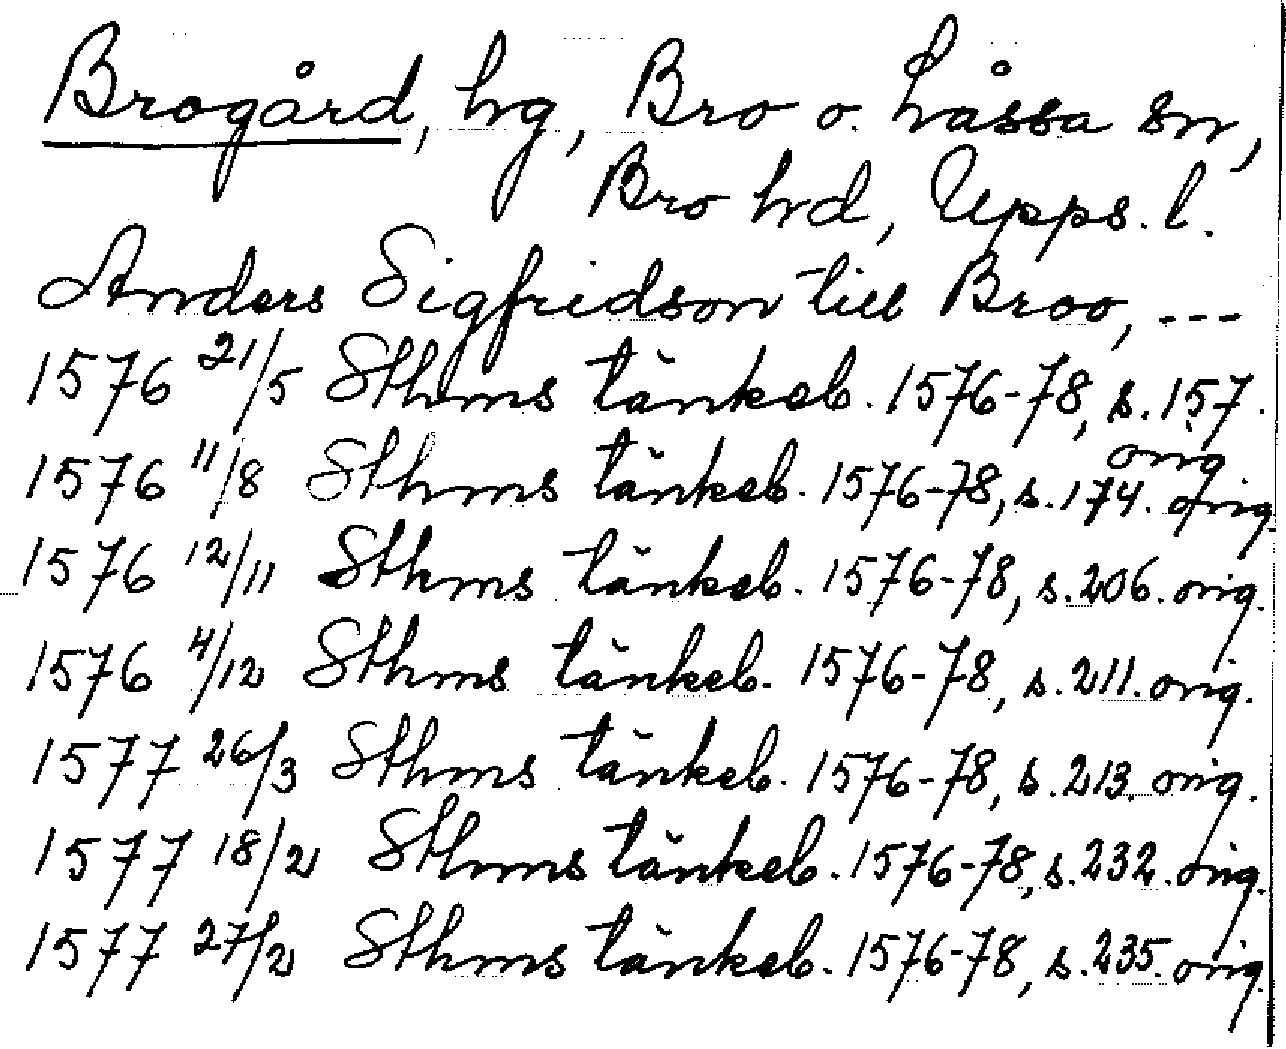 Brogård, hg, Bro o. Låssa snr,
Bro hrd, Upps. l.
Anders Sigfridson till Broo, ---
1576 21/5 Sthms tänkeb. 1576-78, s. 157.
orig
1576 11/8 Sthms tänkeb. 1576-78, s. 174. orig.
1576 12/11 Sthms tänkeb. 1576-78, s. 206. orig.
1576 4/12 Sthms tänkeb. 1576-78, s. 211. orig.
1577 26/3 Sthms tänkeb. 1576-78, s. 213. orig.
1577 18/2 Sthms tänkeb. 1576-78, s. 232. orig.
1577 27/2 Sthms tänkeb. 1576-78, s. 235. orig.